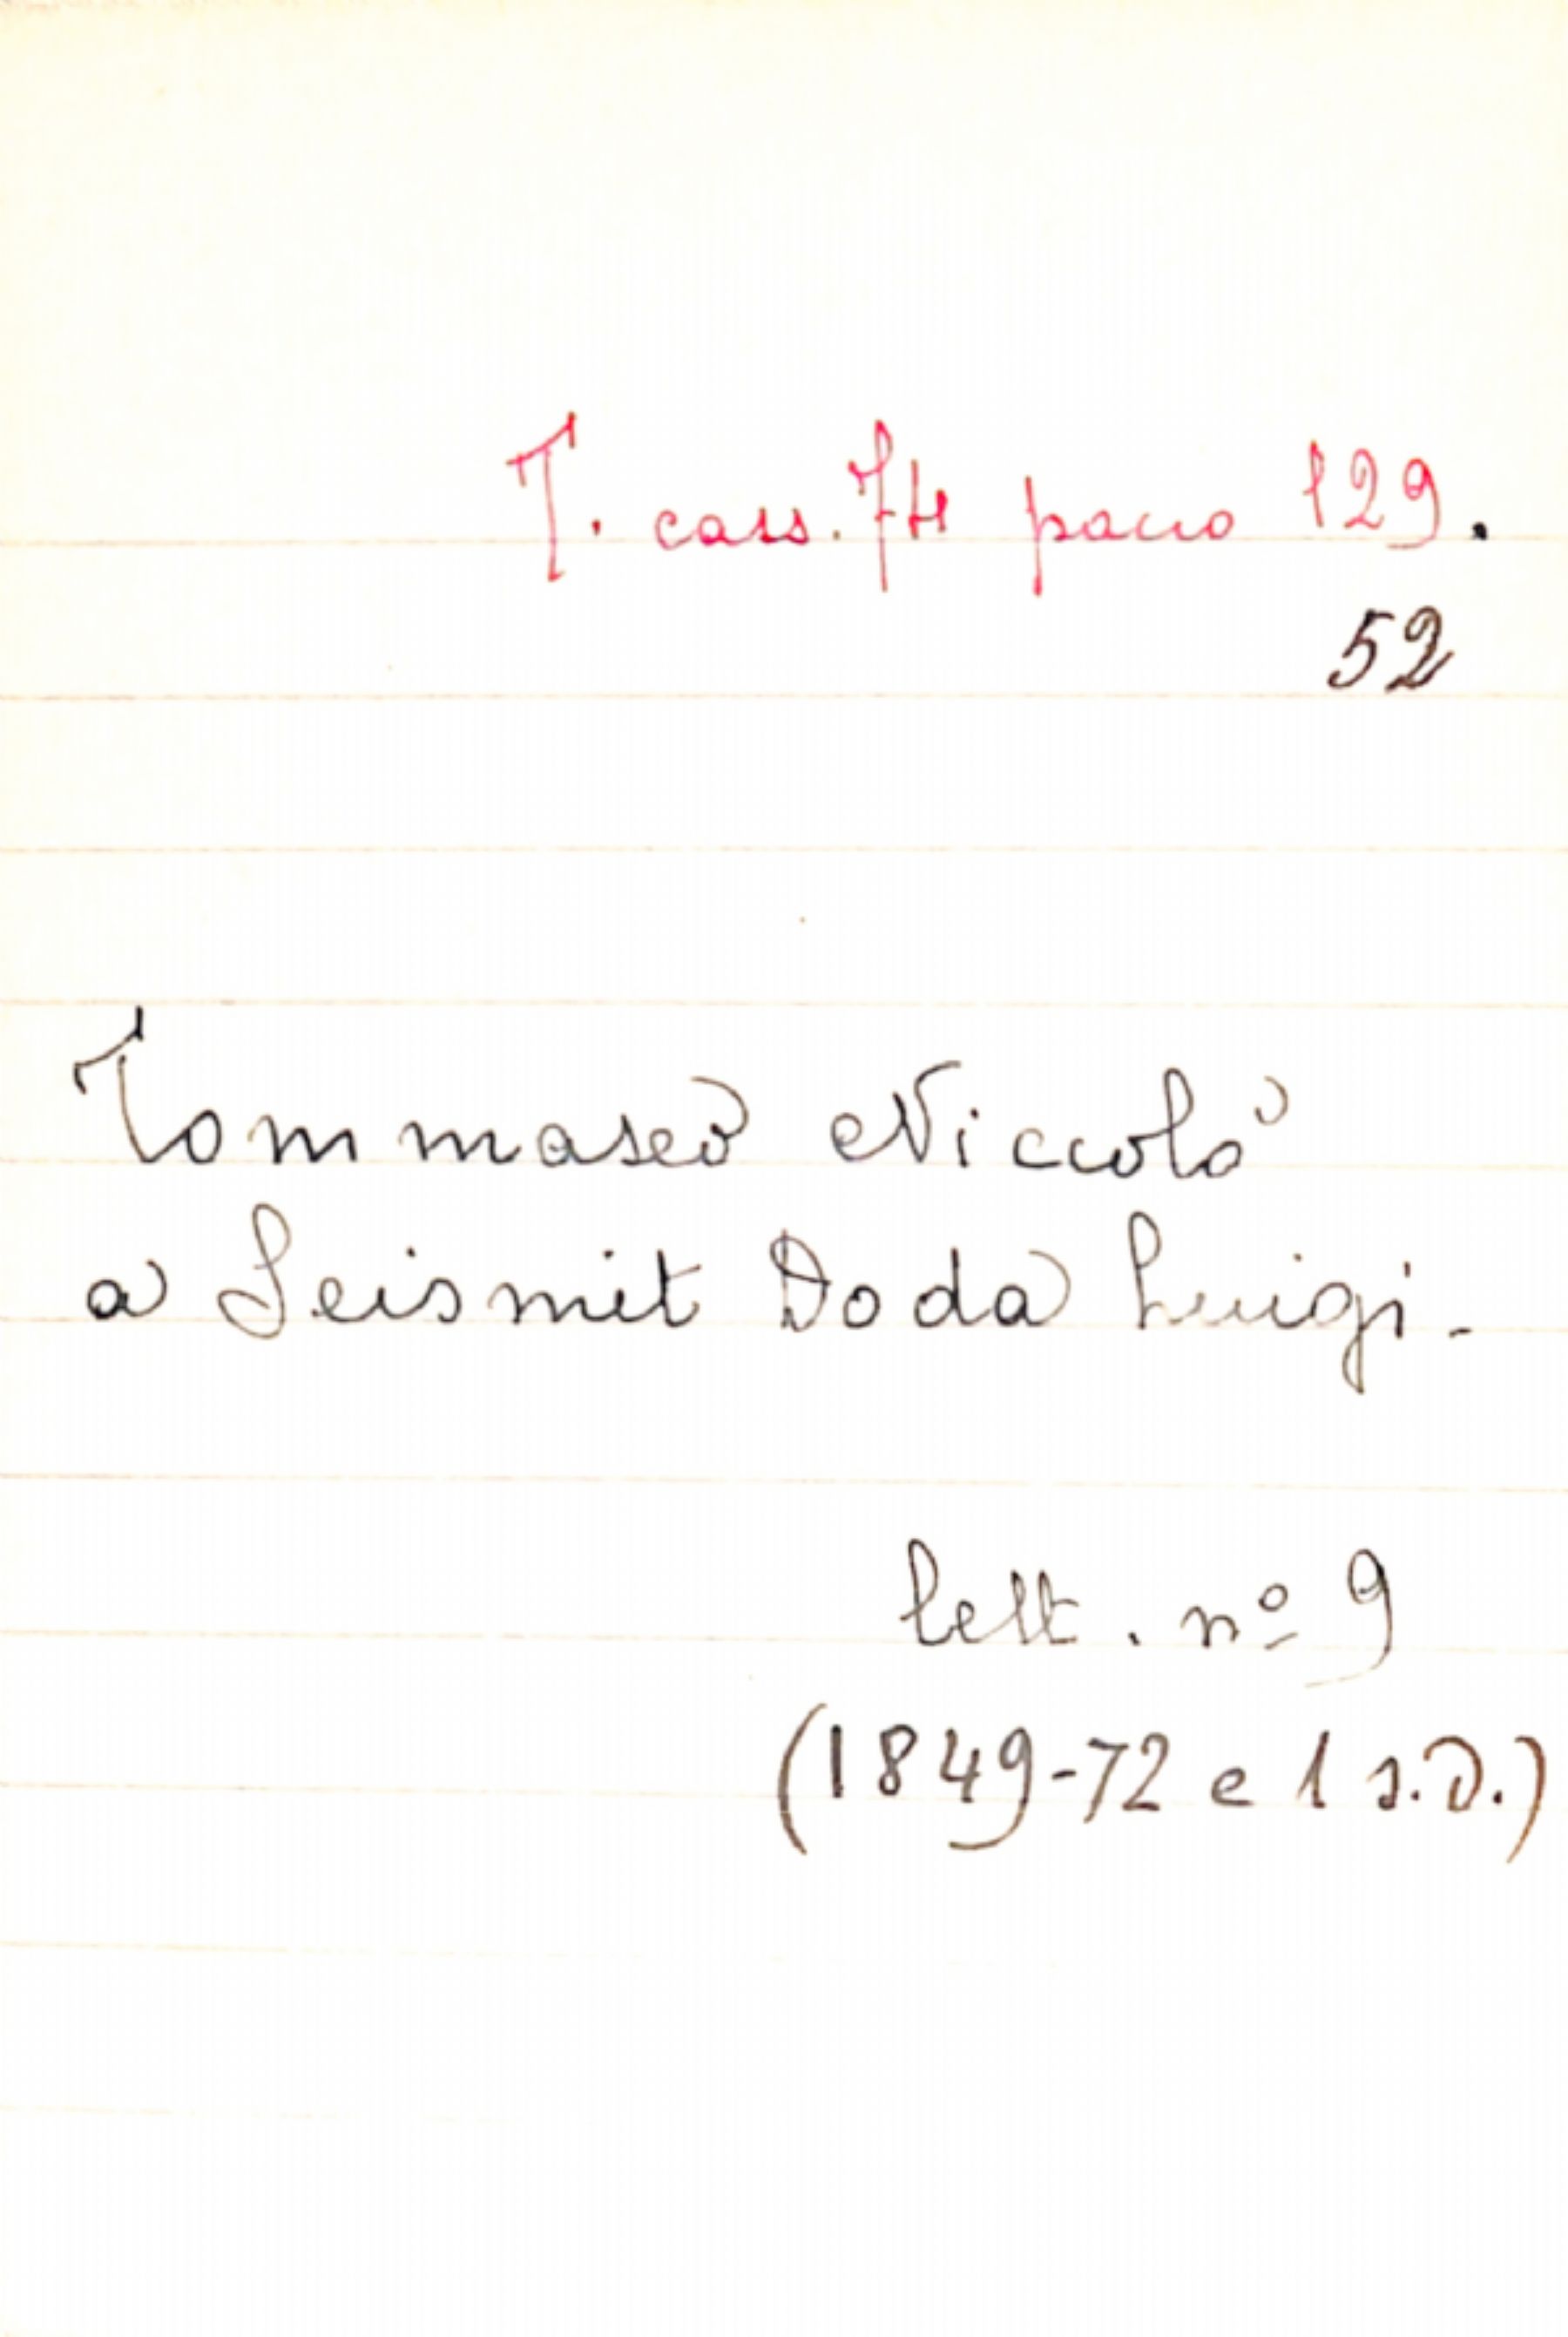 T. cass. 74 pacco 129.
52
Tommaseo Niccolò
a Seismit Doda Luigi.
lett. nº 9
(1849-72 e 1 s.d.)